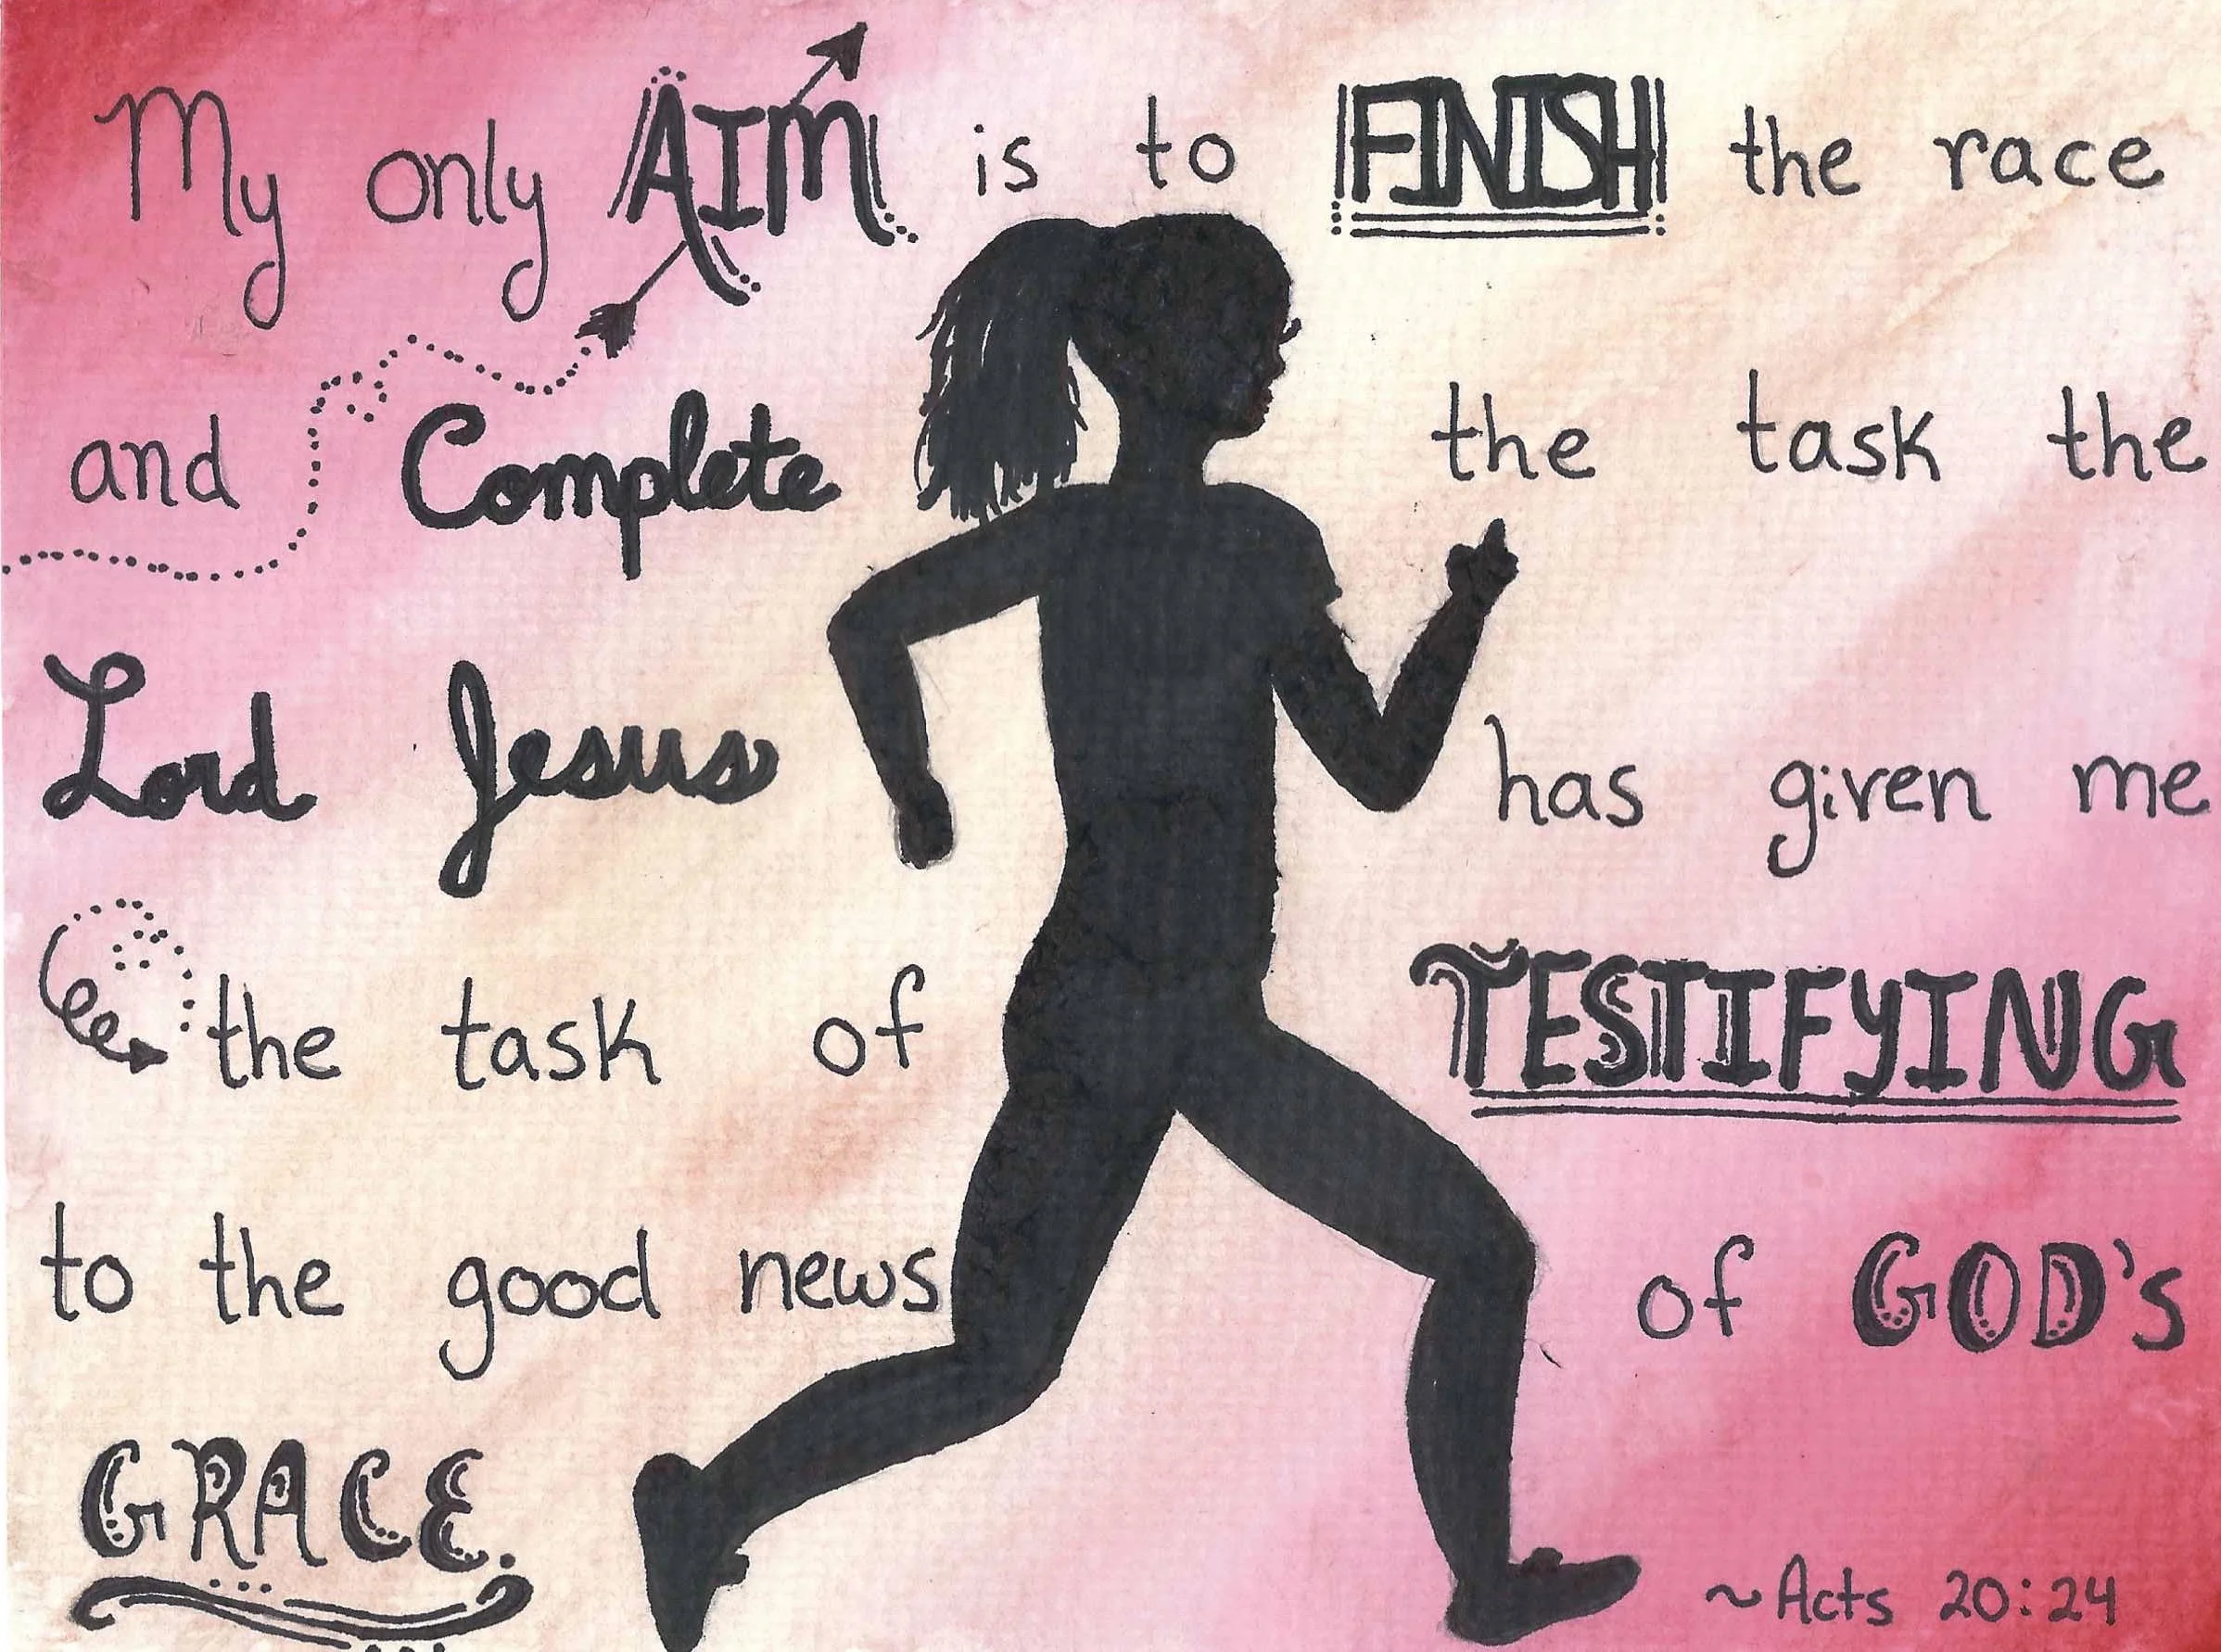 My only AIM is to FINISH the race
and Complete the task the
Lord Jesus has given me
the task of TESTIFYING
to the good news of GOD's
GRACE.
~Acts 20:24